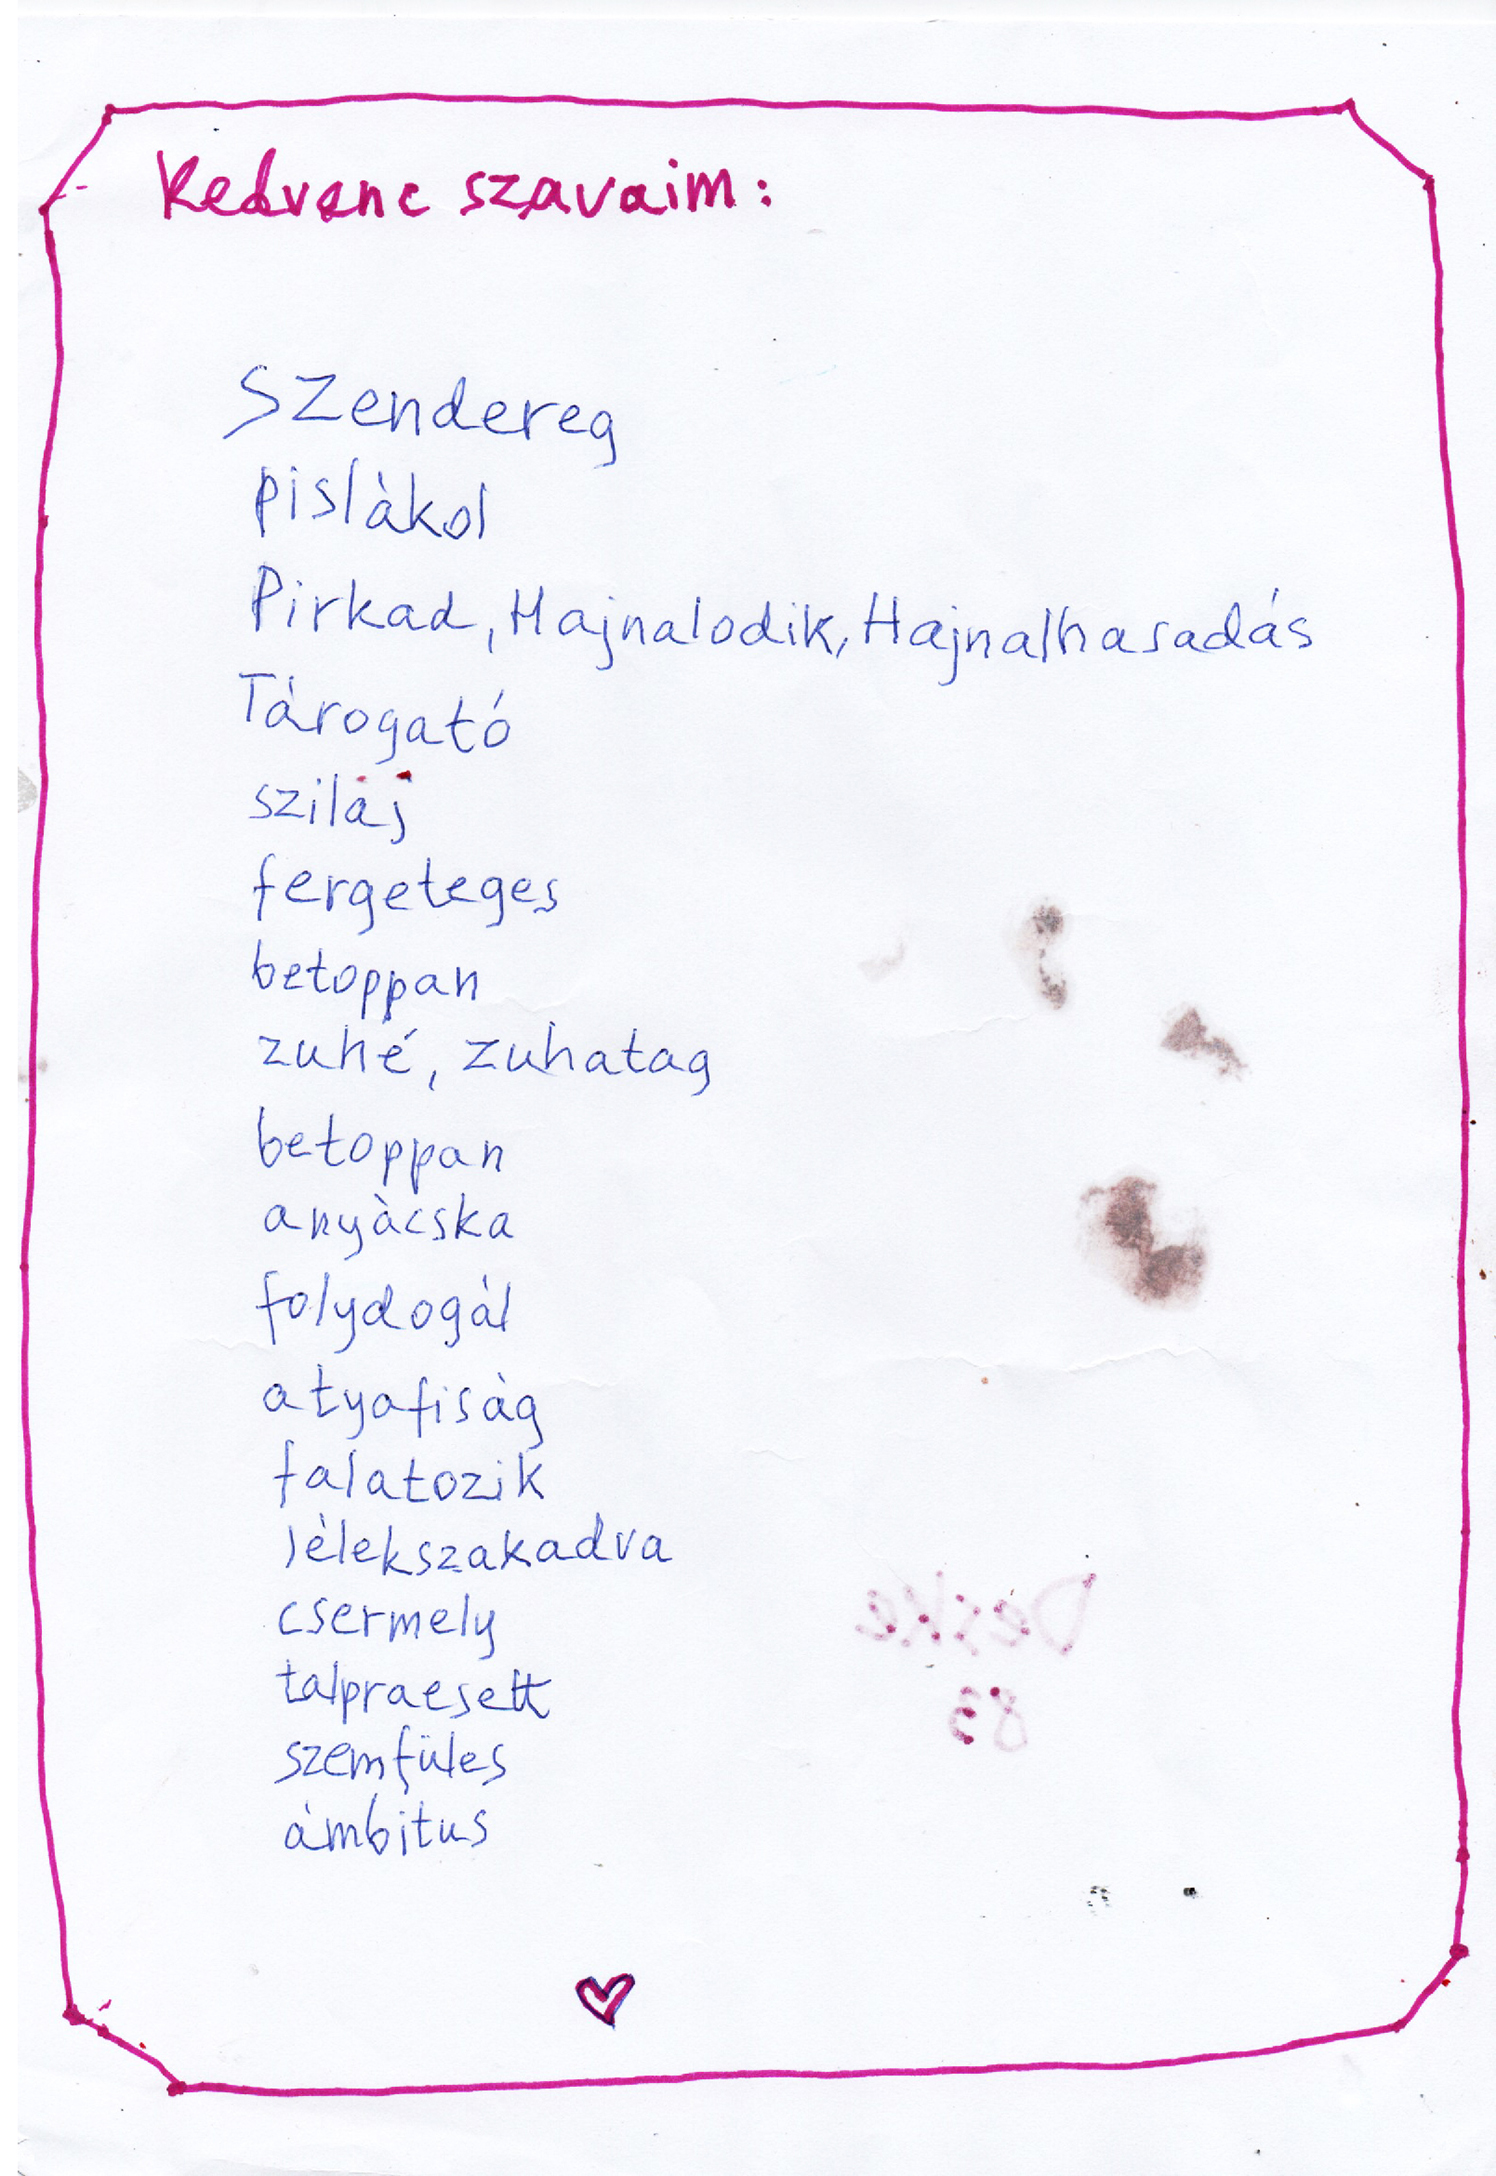 Kedvenc szavaim:
Szendereg
pislákol
Pirkad, Hajnalodik, Hajnalhasadás
Tárogató
szilaj
fergeteges
betoppan
zuhé, zuhatag
betoppan
anyácska
folydogál
atyafiság
falatozik
lélekszakadva
csermely
talpraesett
szemfüles
ámbitus